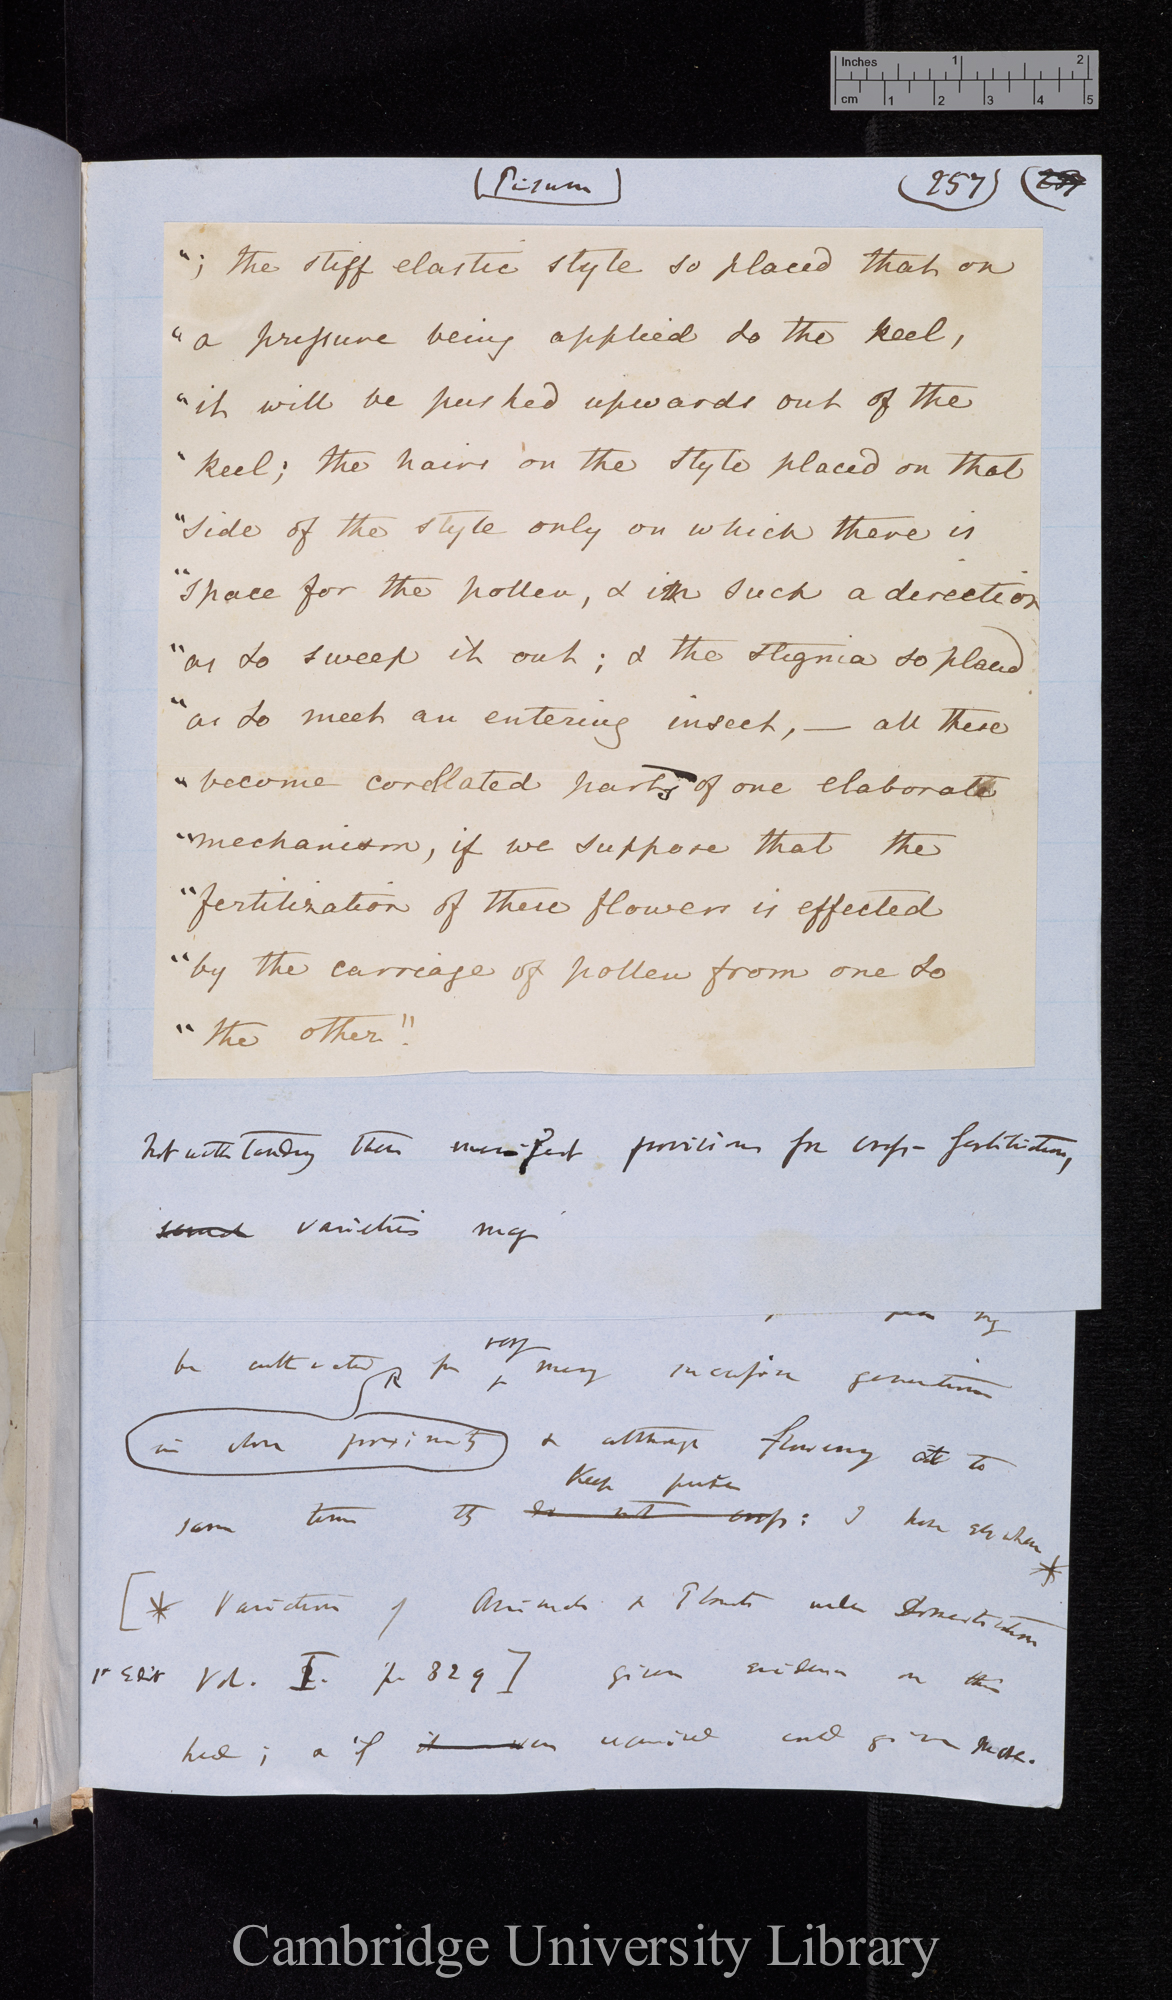 Inches 1 2
cm 1 2 3 4 5
(Pisum) (257)
"; the stiff elastic style so placed that on
"a pressure being applied to the keel,
"it will be pushed upwards out of the
"keel; the hairs on the style placed on that
"side of the style only on which there is
"space for the pollen, & in such a direction
"as to sweep it out; & the stigma so placed
"as to meet an entering insect, — all these
"become corellated parts of one elaborate
"mechanism, if we suppose that the
"fertilization of these flowers is effected
"by the carriage of pollen from one to
"the other".
Notwithstanding these manifest provisions for cross-fertilisation,
varieties may
be cultivated for very many successive generations
in close proximity & although flowering at to
Keep pure
same time they do not cross: I have elsewhere *
[* Variation of Animals & Plants under Domestication
1st Edit Vol. I. p 329] given evidence on this
head; & if it were required could give more.
Cambridge University Library